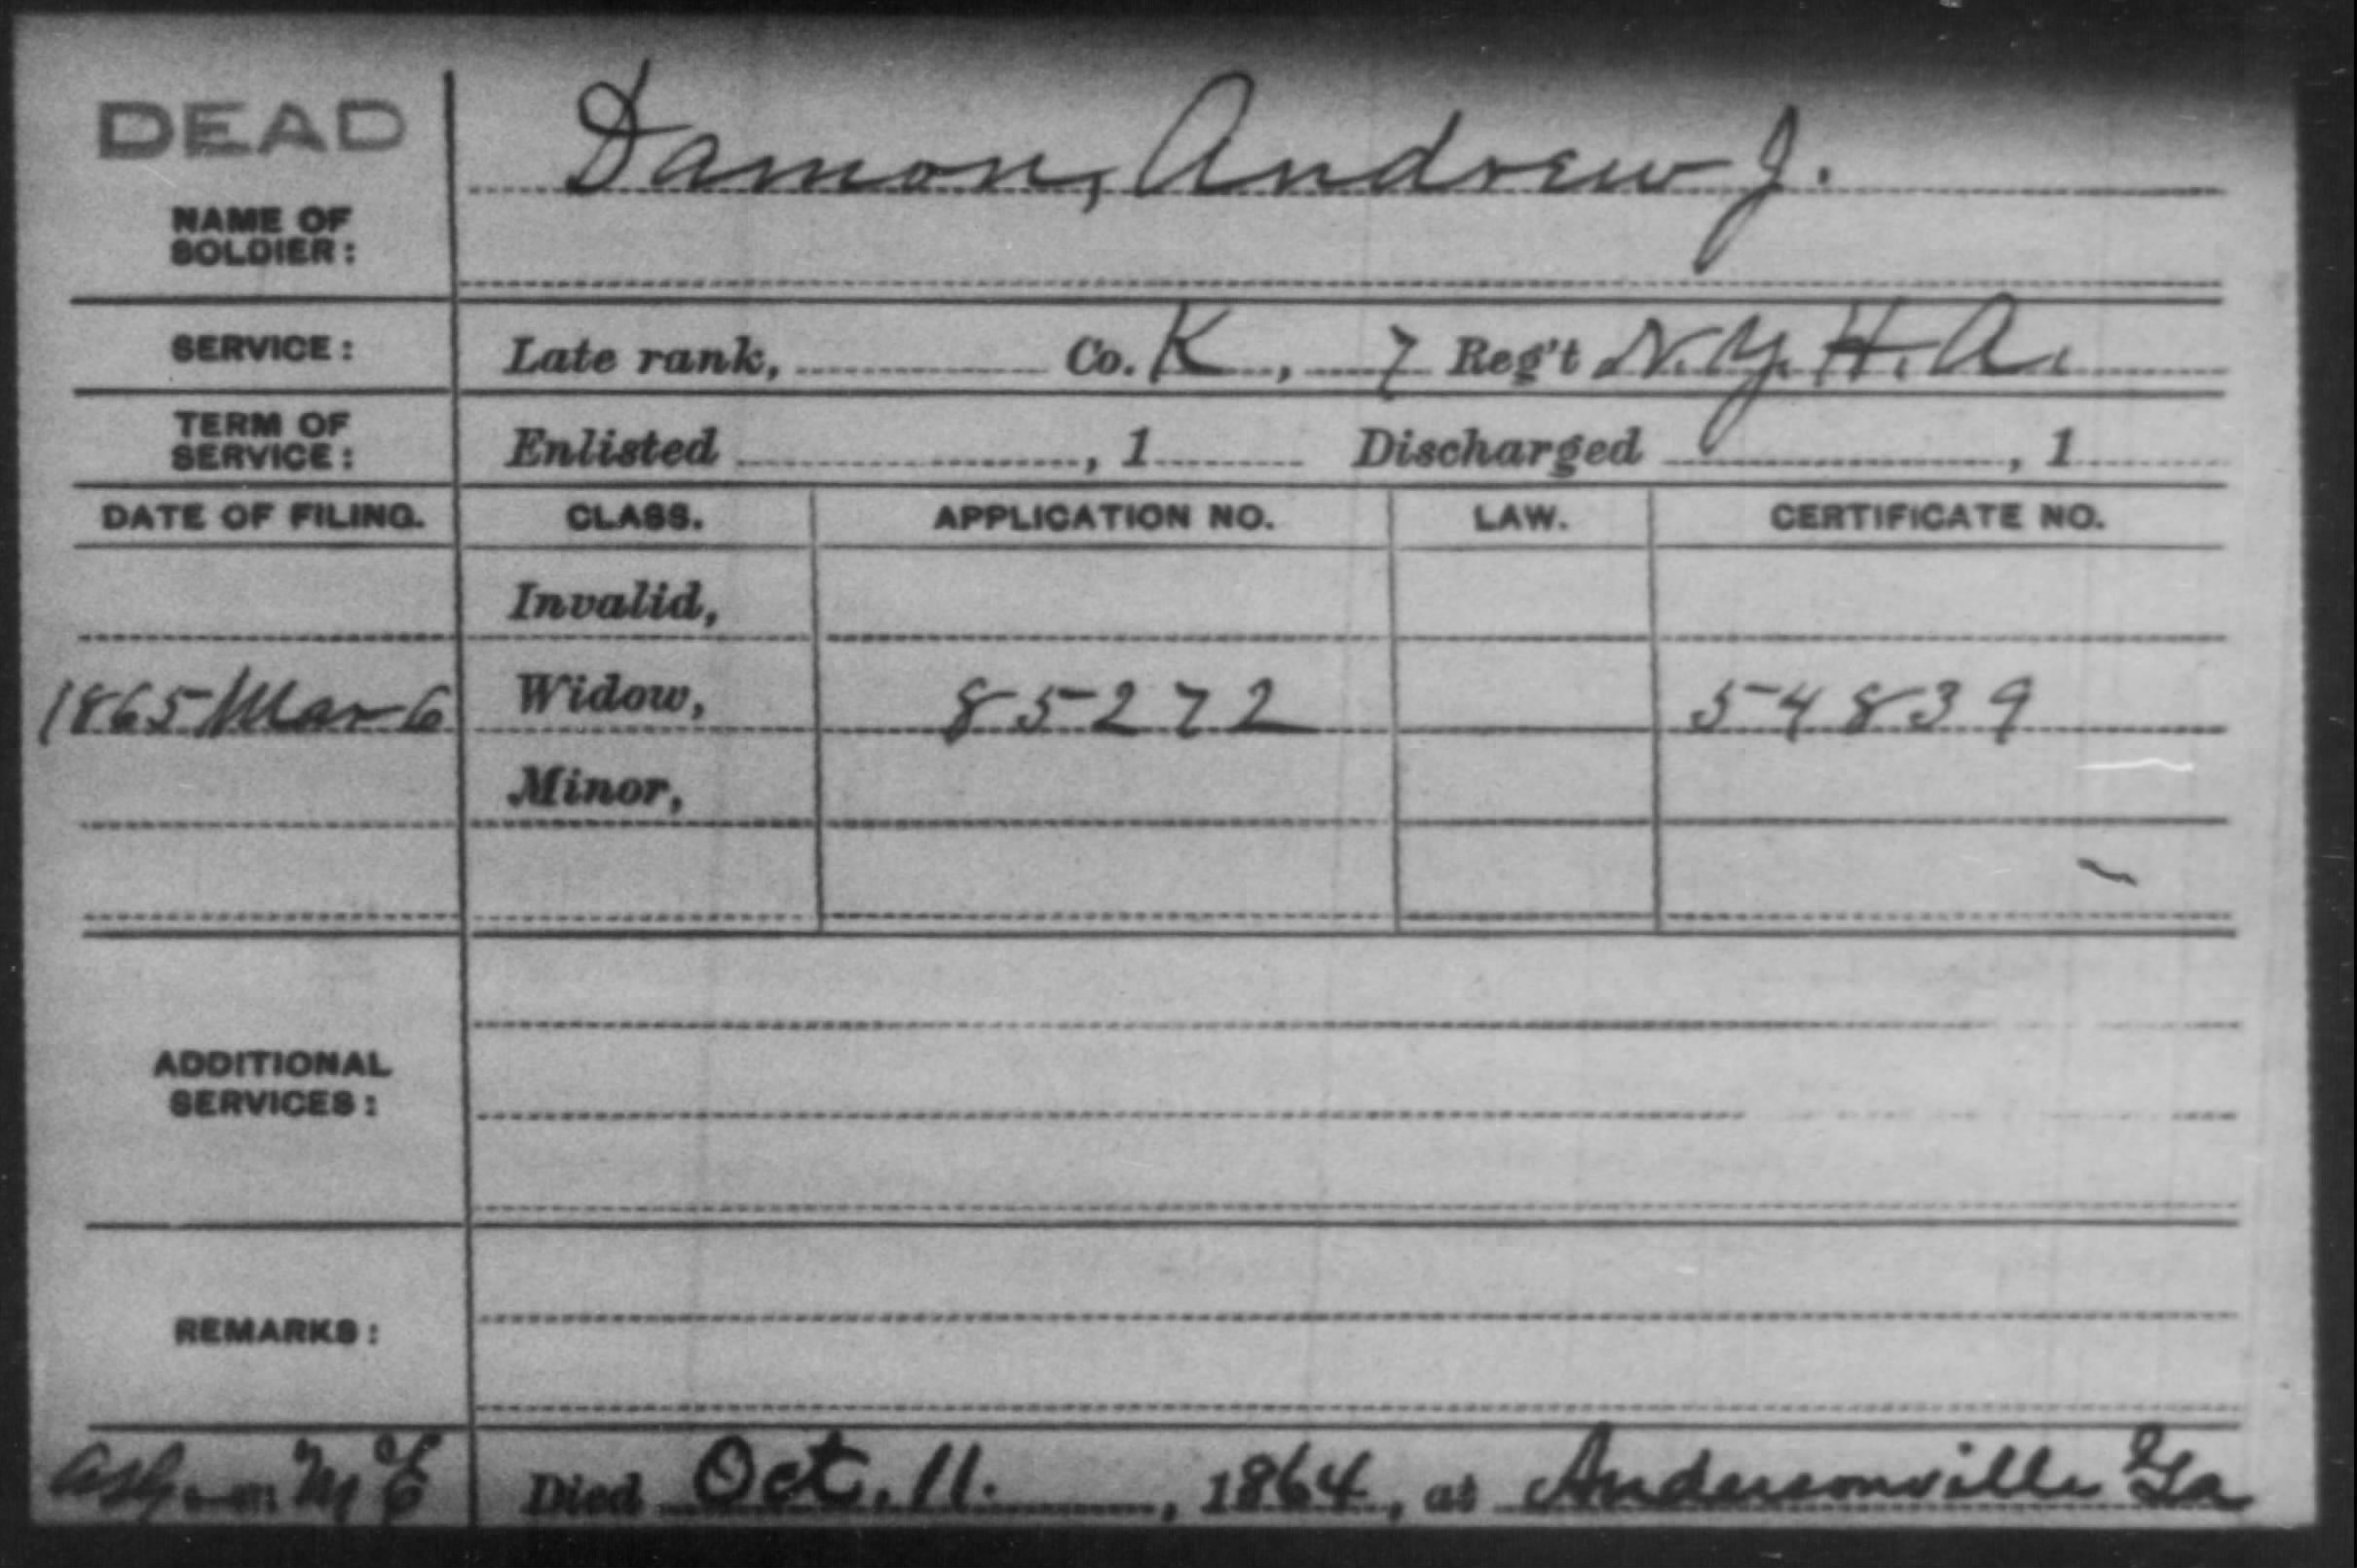 DEAD
Damon, Andrew J.
NAME OF
SOLDIER:
SERVICE: Late rank, Co. K, 7 Reg't N.Y. H. A.
TERM OF
SERVICE: Enlisted , 1 Discharged , 1
DATE OF FILING. CLASS. APPLICATION NO. LAW. CERTIFICATE NO.
Invalid,
1865 Mar 6 Widow, 85272 54839
Minor,
ADDITIONAL
SERVICES:
REMARKS:
Died Oct. 11. , 1864, at Andersonville Ga